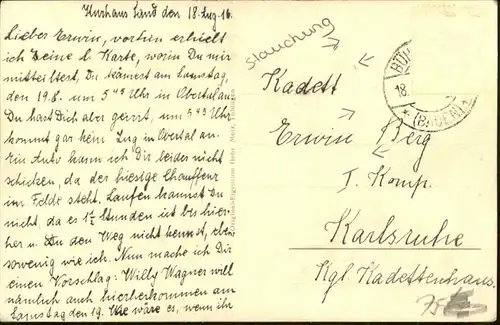 Kurhaus Sand den 18. Aug. 16.
Lieber Erwin, vorhin erhielt
ich Deine l. Karte, worin Du mir
mitteiltest, Du kämest am Samstag,
den 19.8. um 5 45 Uhr in Obertal an.
Du hast Dich aber geirrt, um 5 45 Uhr
kommt gar kein Zug in Obertal an.
Ein Auto kann ich Dir leider nicht
schicken, da der hiesige Chauffeur
im Felde steht. Laufen kannst Du
nicht, da es 1½ Stunden ist bis hier-
her u. Du den Weg nicht kennst, eben-
sowenig wie ich. Nun mache ich Dir
einen Vorschlag: Willy Wagner will
nämlich auch hierherkommen am
Samstag den 19. Wie wäre es, wenn ihr
Stauchung
Kadett
Erwin Berg
I. Komp.
Karlsruhe
Kgl. Kadettenhaus.
BÜH
18.
* (BADEN) 1